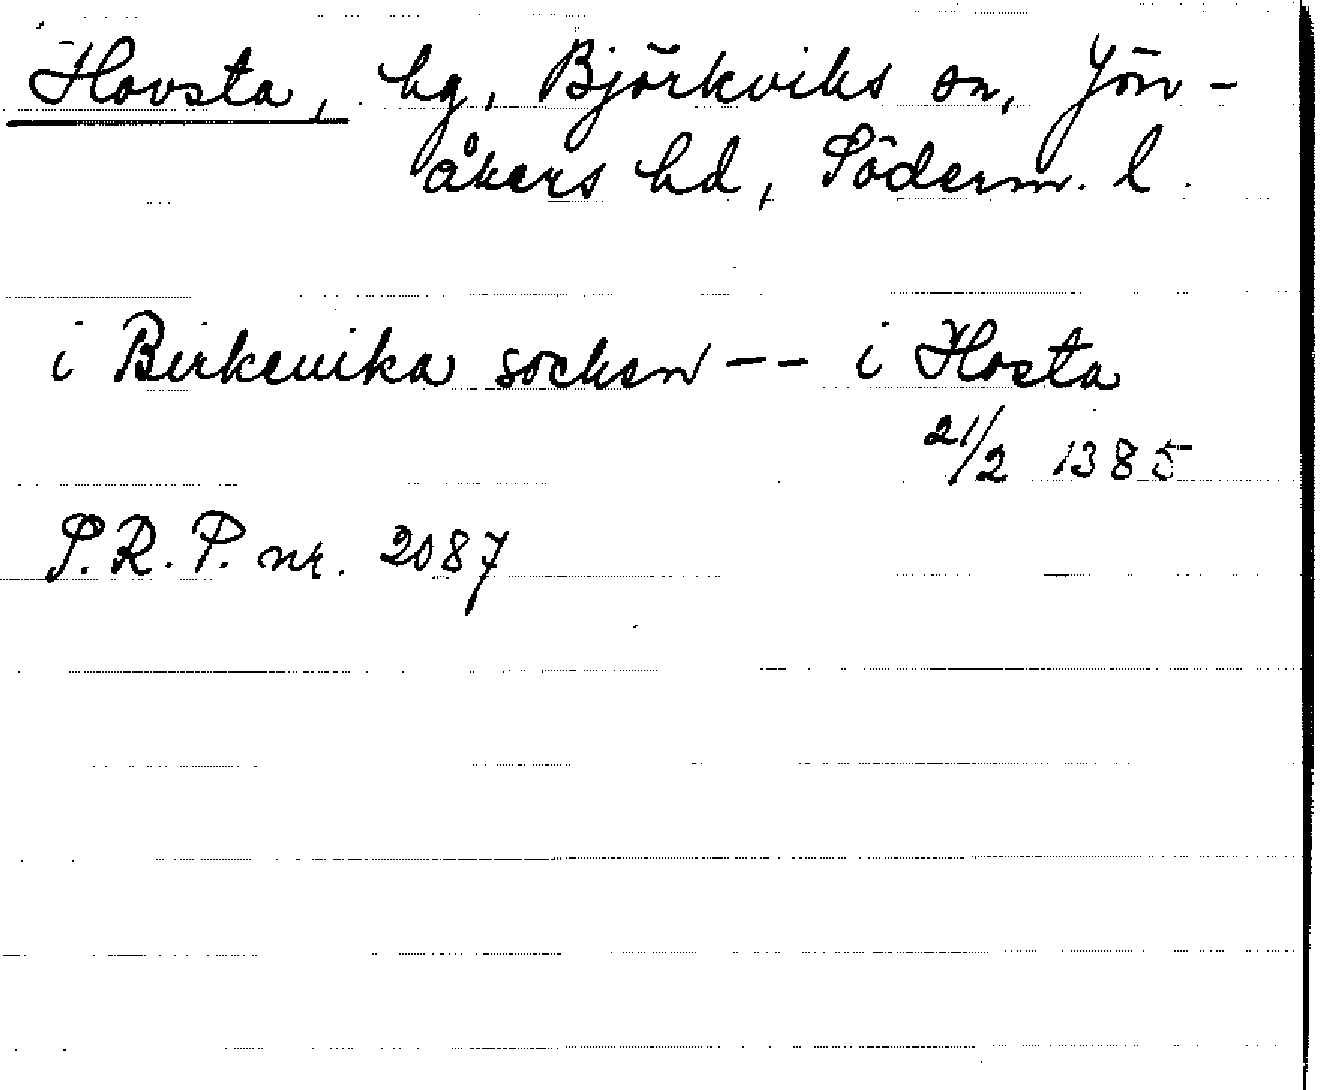 Hovsta, hg, Björkviks sn, Jön-
åkers hd, Söderm. l.
i Birkeuika socken -- i Hosta
21/2 1385
P.R.P. nr. 2087